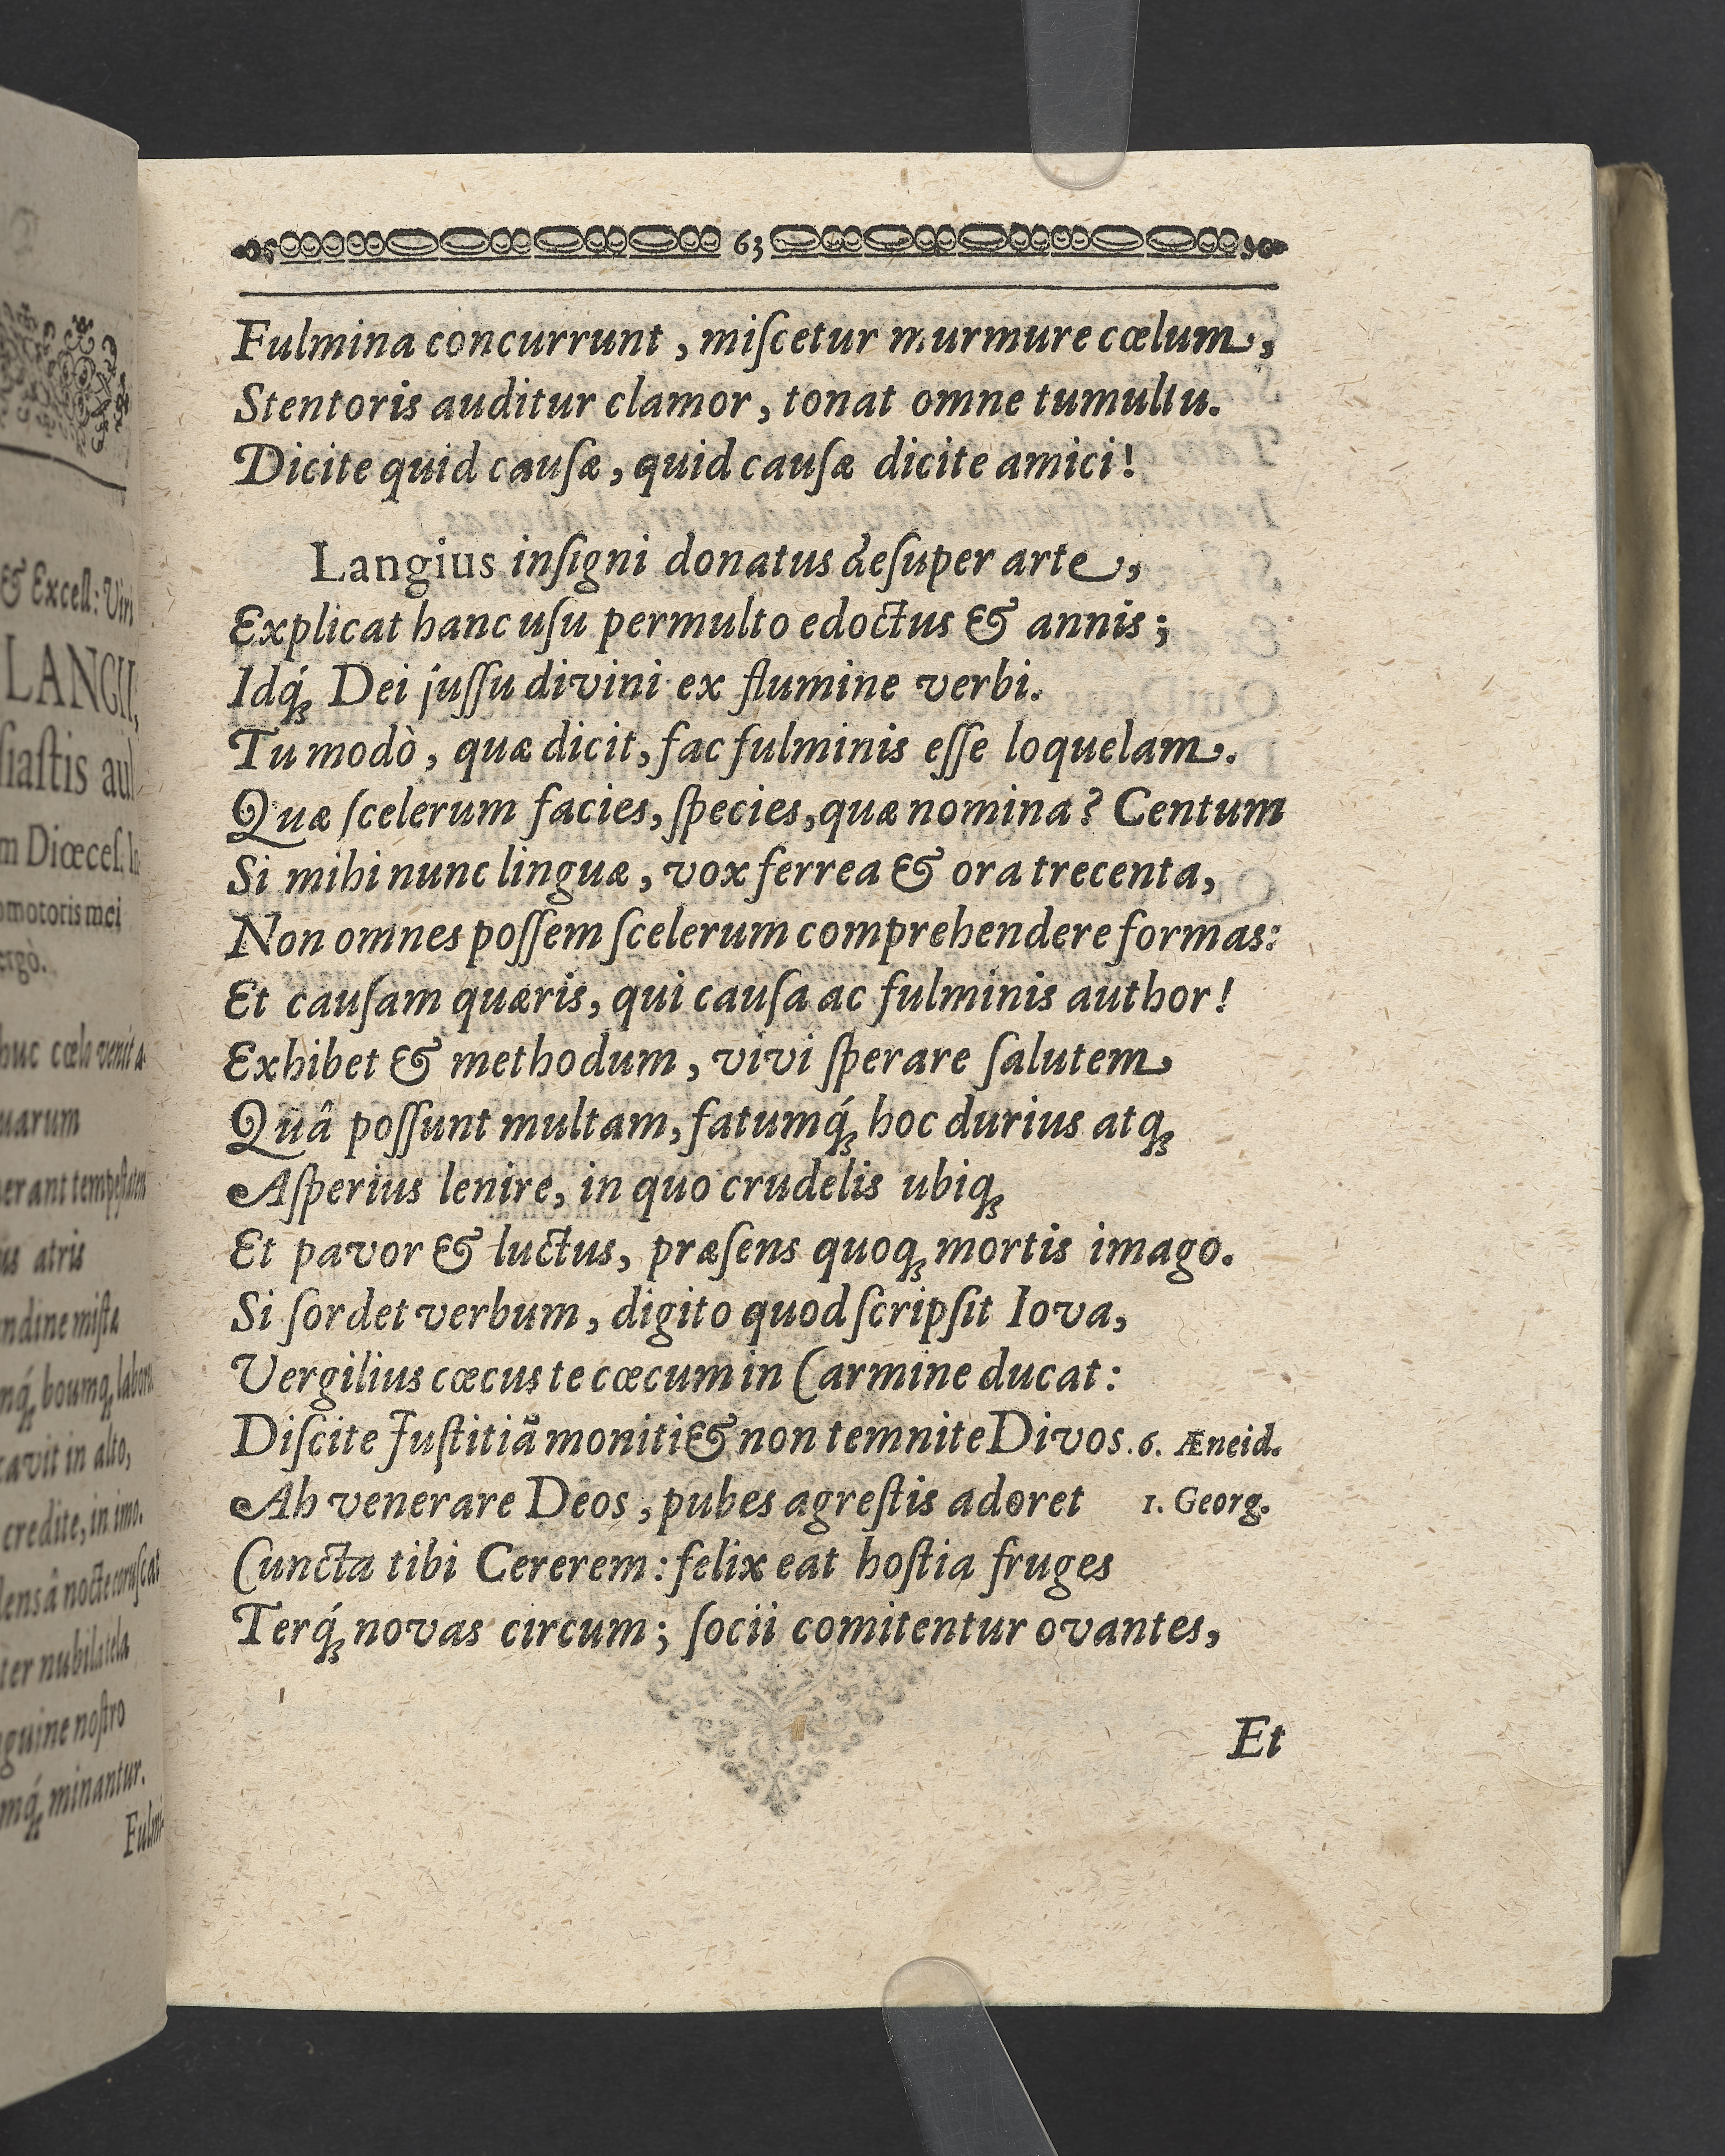 & Excell: Viri
LANGII,
siastis aul
m Diœces.
omotoris mei
ergò.
huc cœlo venit
uarum
is atris
ndine mista
mq́; boumq;
cavit in alto,
credite, in imo.
lensâ nocte
ter nubila tela
guine nostro
mq́; minantur.
Fulmi-
63
Fulmina concurrunt, miſcetur murmure cœlum,
Stentoris auditur clamor, tonat omne tumultu.
Dicite quid cauſæ, quid cauſæ dicite amici!
Langius inſigni donatus deſuper arte,
Explicat hanc uſu permulto edoctus & annis;
Idq́; Dei juſſu divini ex flumine verbi.
Tu modò, quæ dicit, fac fulminis eſſe loquelam.
Quæ ſcelerum facies, ſpecies, quæ nomina? Centum
Si mihi nunc linguæ, vox ferrea & ora trecenta,
Non omnes poſſem ſcelerum comprehendere formas:
Et cauſam quæris, qui cauſa ac fulminis author!
Exhibet & methodum, vivi ſperare ſalutem
Quâ poſſunt multam, fatumq́; hoc durius atq;
Aſperius lenire, in quo crudelis ubiq;
Et pavor & luctus, præſens quoq; mortis imago.
Si ſordet verbum, digito quod ſcripſit Iova,
Vergilius cœcus te cœcum in Carmine ducat:
Diſcite Juſtitiã moniti & non temnite Divos. 6. Æneid.
Ah venerare Deos, pubes agreſtis adoret 1. Georg.
Cuncta tibi Cererem: felix eat hoſtia fruges
Terq́; novas circum; ſocii comitentur ovantes,
Et